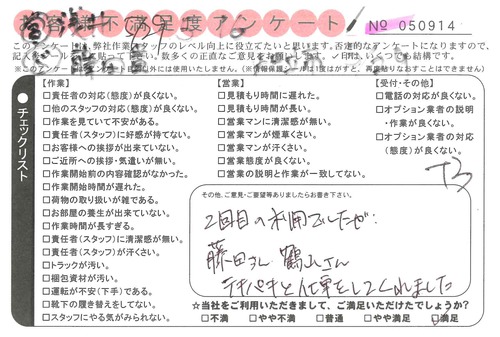 お客様不満足度アンケート
№ 050914
このアンケートは、弊社作業スタッフのレベル向上に役立てたいと思います。否定的なアンケートになりますので、
※このアンケート
チェックリスト
【作業】
□責任者の対応(態度)が良くない。
□他のスタッフの対応(態度)が良くない。
□作業を見ていて不安がある。
□責任者(スタッフ)に好感が持てない。
□お客様への挨拶が出来ていない。
□ご近所への挨拶・気遣いが無い。
□作業開始前の内容確認がなかった。
□作業開始時間が遅れた。
□荷物の取り扱いが雑である。
□お部屋の養生が出来ていない。
□作業時間が長すぎる。
□責任者(スタッフ)に清潔感が無い。
□責任者(スタッフ)が汗くさい。
□トラックが汚い。
□梱包資材が汚い。
□運転が不安(下手)である。
□靴下の履き替えをしてない。
□スタッフにやる気がみられない。
【営業】
□見積もり時間に遅れた。
□見積もり時間が長い。
□営業マンに清潔感が無い。
□営業マンが煙草くさい。
□営業マンが汗くさい。
□営業態度が良くない。
□営業の説明と作業が一致してない。
【受付・その他】
□電話の対応が良くない。
□オプション業者の説明
・作業が良くない。
□オプション業者の対応
(態度)が良くない。
その他、ご意見・ご要望等ありましたらお書き下さい。
2回目の利用でしたが
藤田さん 鶴山さん
テキパキと仕事をしてくれました
☆当社をご利用いただきまして、ご満足いただけたでしょうか?
□不満 □やや不満 □普通 □やや満足 □満足